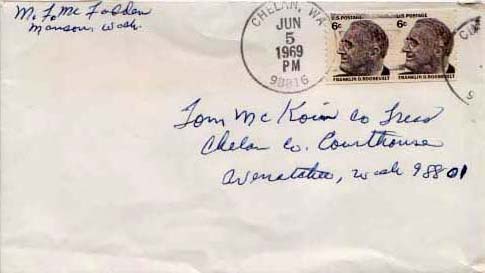 M. F. Mc Fadden
Manson, Wash.
CHELAN, WA
JUN
5
1969
PM
98816
U.S. POSTAGE
6¢
FRANKLIN D. ROOSEVELT
U.S. POSTAGE
6¢
FRANKLIN D. ROOSEVELT
Tom McKoin Co Treas
Chelan Co. Courthouse
Wenatchee, Wash 98801